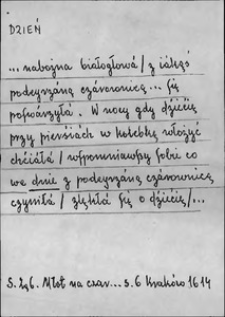 DZIEŃ
... nabożna białogłowá / z iákąś
podeyrzáną czárownicą... się
poswárzyłá. W nocy gdy dziecię
przy pierśiách w kolebkę włożyć
chćiáłá / wspomniawszy sobie co
we dnie z podeyrzáną czárownicą
czyniłá / zlękłá się o dziecię / ...
S. Ząb. Młot na czar... s. 6 Kraków 1614